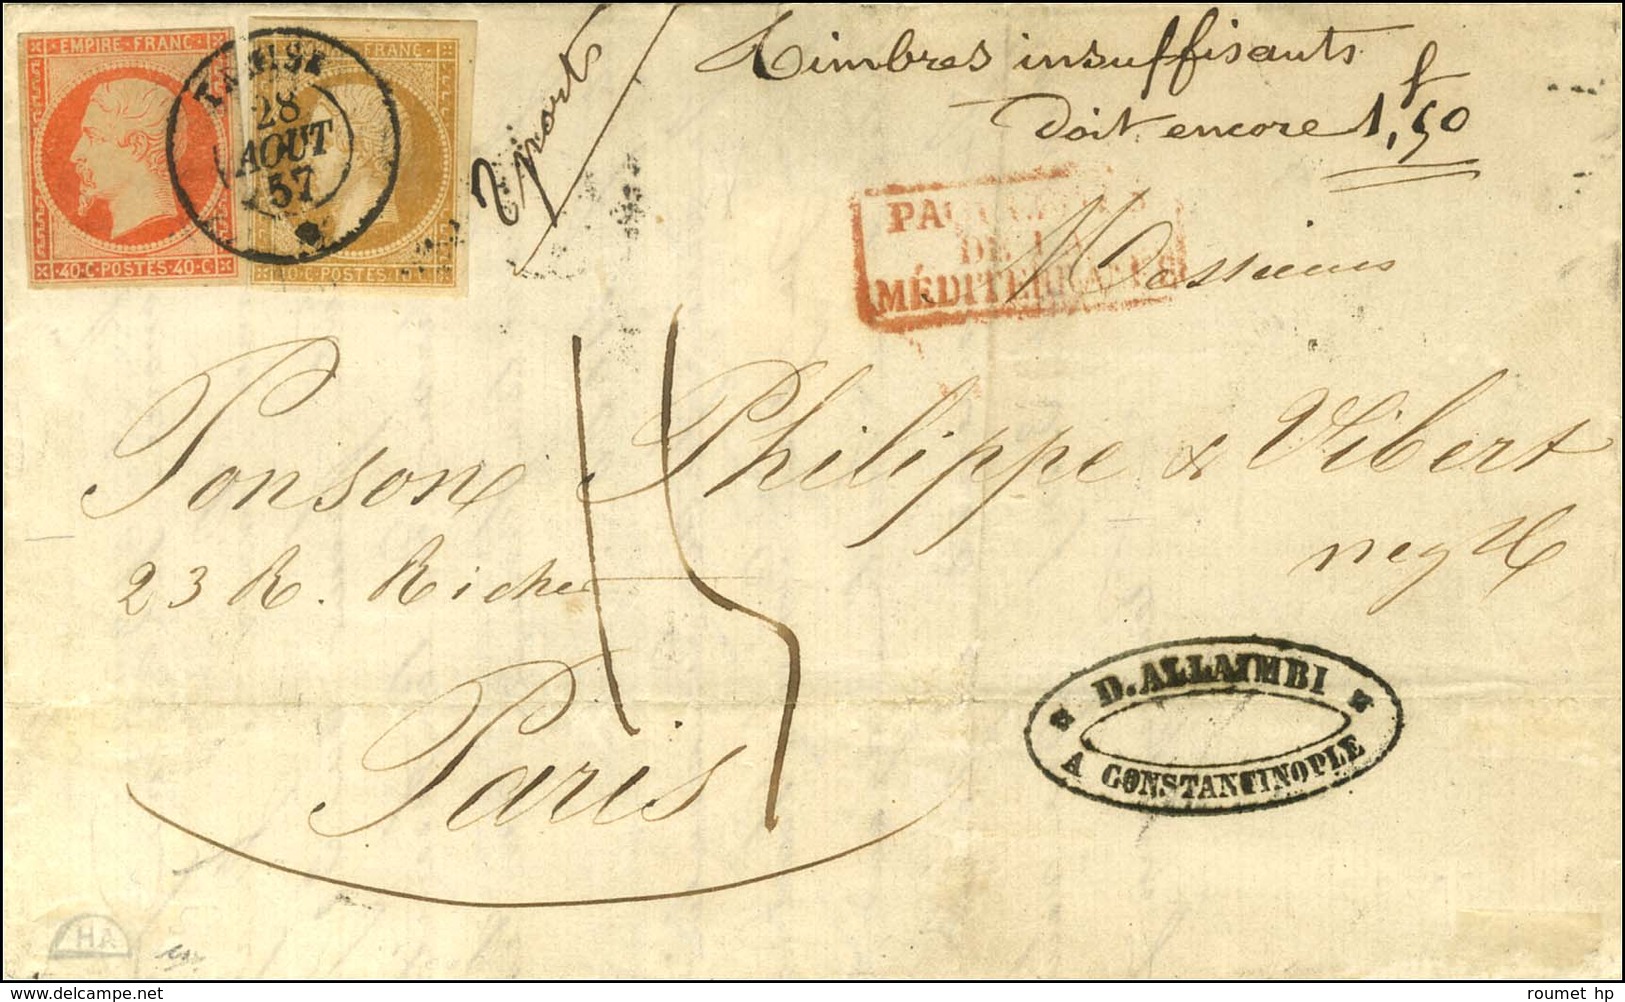 EMPIRE FRANC
40·C·POSTES·40·C
EMPIRE FRANC
10·C·POSTES·10·C
28
AOUT
57
2 ports
Timbres insuffisants
f
doit encore 1,50
PAQUEBOTS
DE LA
MÉDITERRANÉE
Messieurs
15
Ponson Philippe & Vibert
neg ts
23 R. Richer
Paris
D. ALLAIMBI
A CONSTANTINOPLE
HA
roumet hp